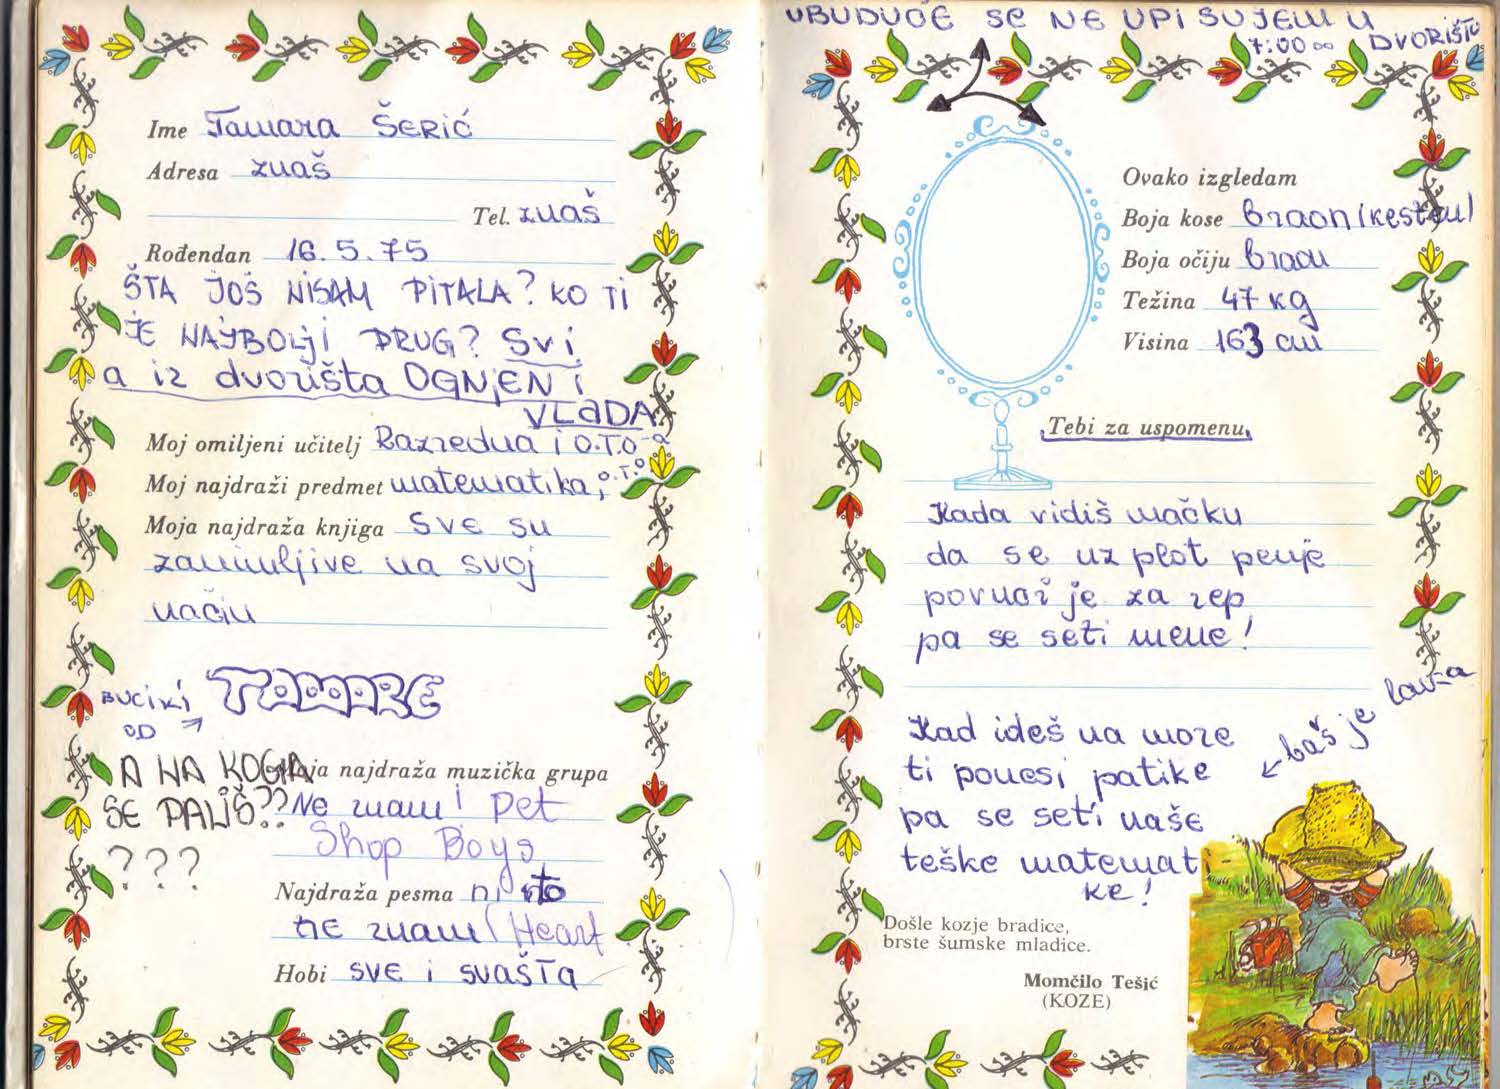 Ime Tamara Šerić
Adresa znaš
Tel. znaš
Rođendan 16.5.75
ŠTA JOŠ NISAM PITALA? KO TI
JE NAJBOLJI DRUG? Svi
a iz dvorišta OGNJEN i
VLADA
Moj omiljeni učitelj Razredna i O.T.O-a
Moj najdraži predmet matematika, O.T.O
Moja najdraža knjiga SVE SU
zanimljive na svoj
način
BUCIKI TAMARE
OD
A NA KOGA
SE PALIŠ??
???
Moja najdraža muzička grupa
Ne znam i Pet
Shop Boys
Najdraža pesma ni to
NE znam (Heart
Hobi SVE i SVAŠTA
UBUDUĆE SE NE UPISUJEM U
7:00 DVORIŠTU
Ovako izgledam
Boja kose braon (kesten)
Boja očiju braon
Težina 47 kg
Visina 163 cm
Tebi za uspomenu,
Kada vidiš mačku
da se uz plot penje
povuci je za rep
pa se seti mene!
Kad ideš na more
ti ponesi patike
pa se seti naše
teške matemat
ke!
baš je
Došle kozje bradice,
brste šumske mladice.
Momčilo Tešić
(KOZE)